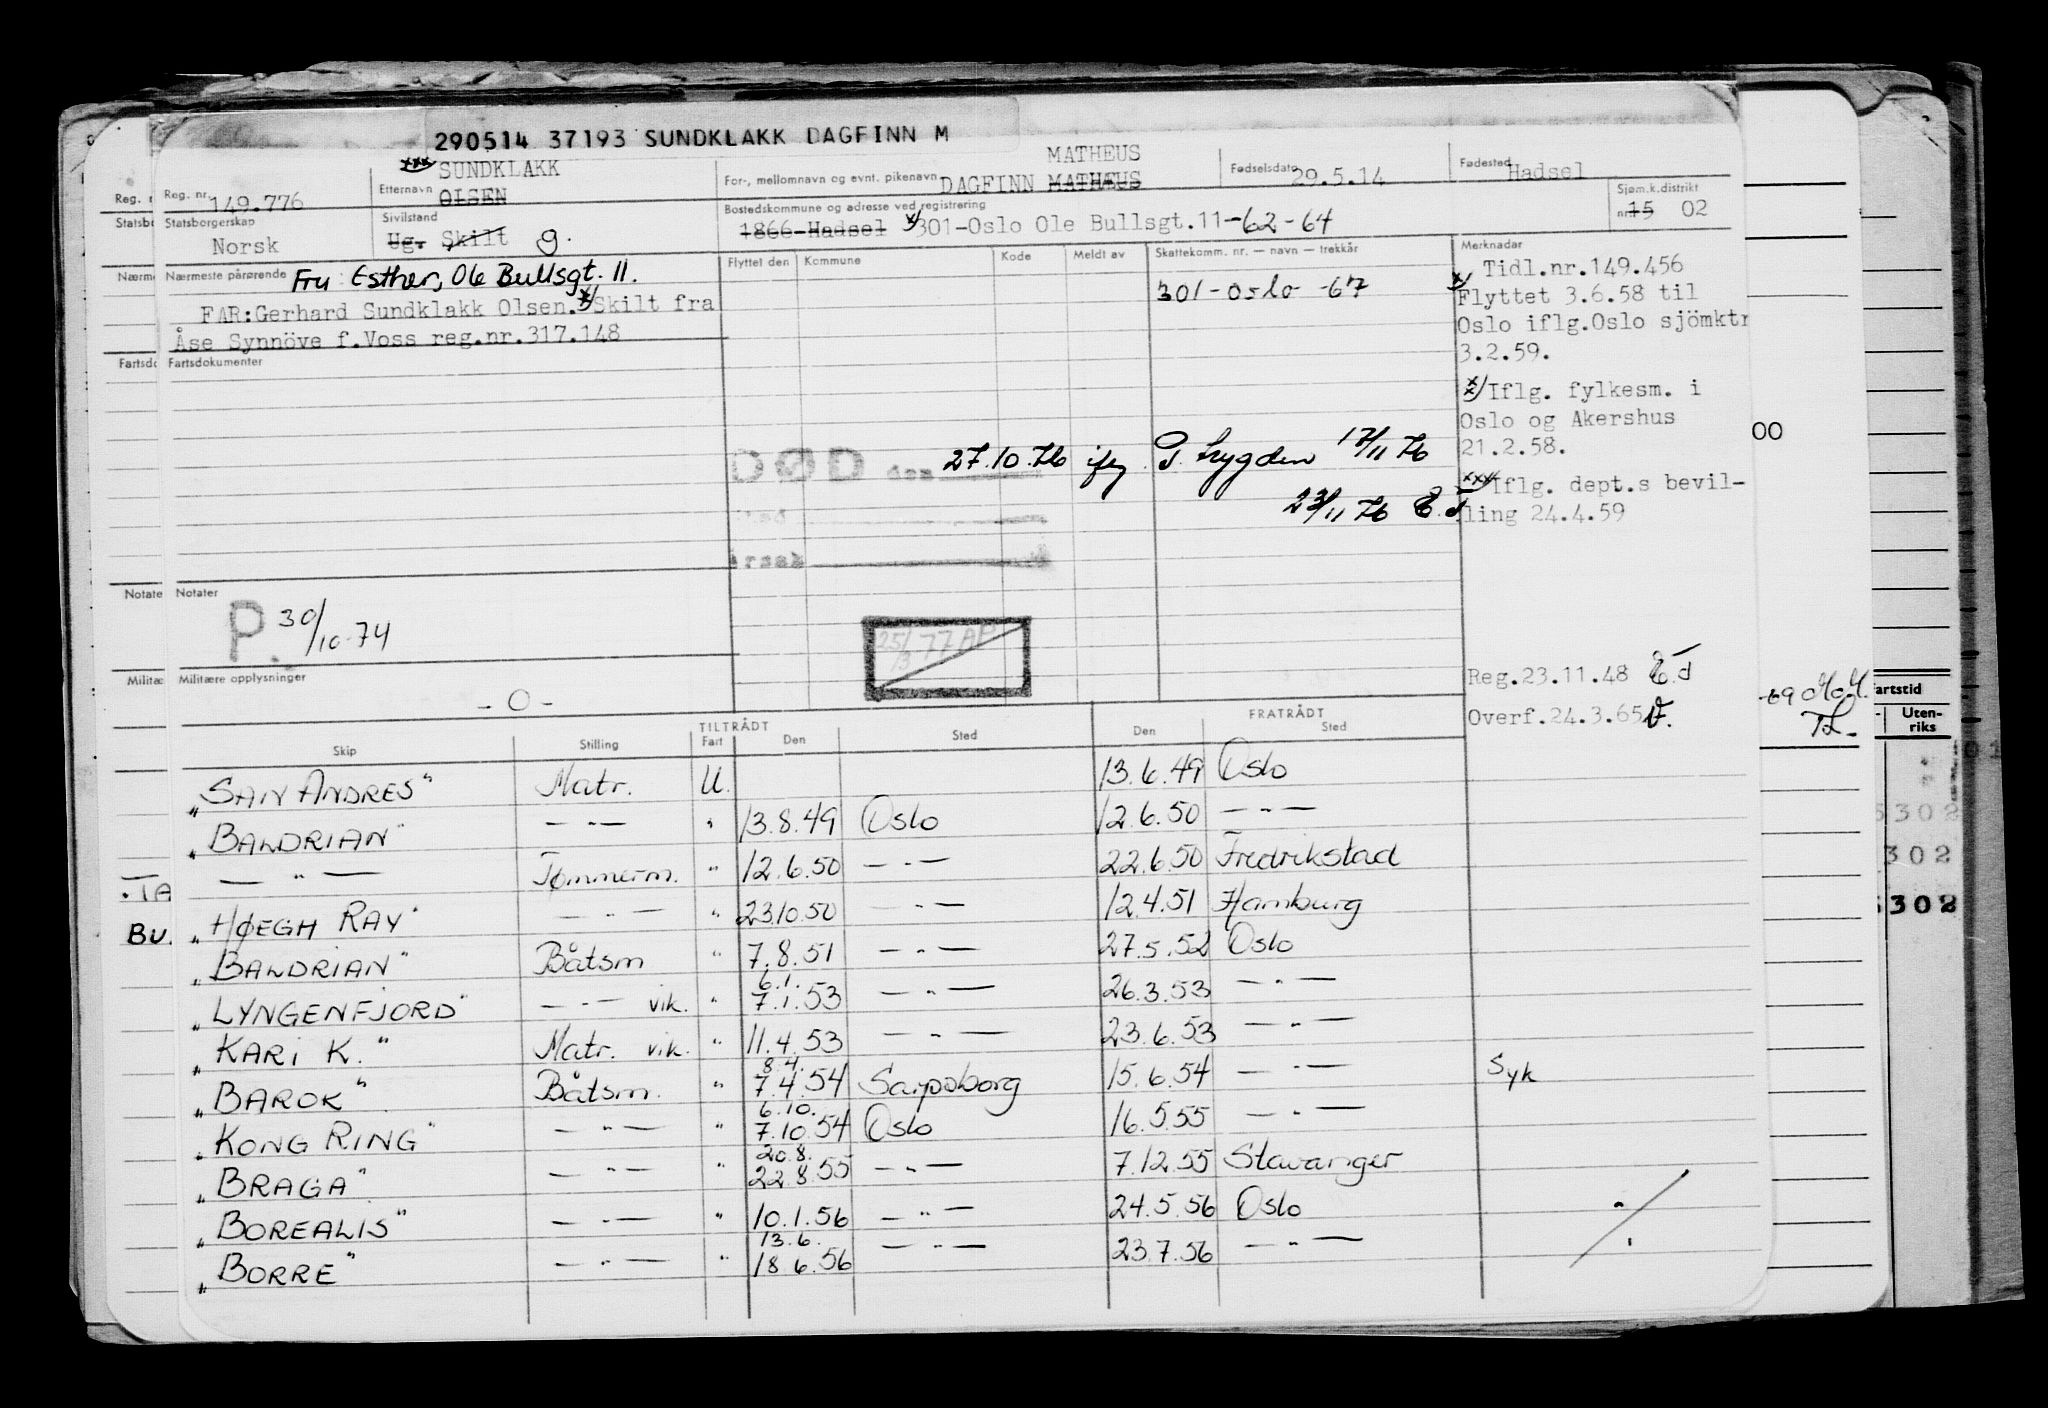 290514 37193 SUNDKLAKK DAGFINN M
Reg. nr. 149.776
Etternavn xxx/ SUNDKLAKK
OLSEN
For-, mellomnavn og evnt. pikenavn DAGFINN MATHÆUS MATHEUS
Fødselsdato 29.5.14
Fødested Hadsel
Statsborgerskap Norsk
Sivilstand Ug. Skilt g.
Bostedskommune og adresse ved registrering
1866-Hadsel x/ 301-Oslo Ole Bullsgt.11 -62-64
Sjøm.k.distrikt
nr. 15 02
Nærmeste pårørende Fru Esther, Ole Bullsgt. 11.
FAR:Gerhard Sundklakk Olsen. Skilt fra
Åse Synnöve f.Voss reg.nr.317.148
Flyttet den Kommune Kode Meldt av Skattekomm. nr. — navn — trekkår
301-Oslo -67
Merknader
Tidl.nr.149.456
x/ Flyttet 3.6.58 til
Oslo iflg.Oslo sjömktr
3.2.59.
Iflg. fylkesm. i
Oslo og Akershus
21.2.58.
xxx/ Iflg. dept.s bevil-
ling 24.4.59
Fartsdokumenter
DØD den 27.10.76 ifg P. Lygden 17/11 76
23/11 76 E.d
Årsak
Notater
P. 30/10-74
25/3-77 AP
Militære opplysninger
- O -
Reg.23.11.48 E.d
Overf.24.3.65
TILTRÅDT FRATRÅDT
Skip Stilling Fart Den Sted Den Sted
"SAN ANDRES" Matr. U. 13.6.49 Oslo
"BALDRIAN" — " — " 13.8.49 Oslo 12.6.50 — " —
— " — Tømmerm. " 12.6.50 — " — 22.6.50 Fredrikstad
"HØEGH RAY" — " — " 23.10.50 — " — 12.4.51 Hamburg
"BALDRIAN" Båtsm " 7.8.51 — " — 27.5.52 Oslo
"LYNGENFJORD" — " — vik. " 6.1. 7.1.53 — " — 26.3.53 — " —
"KARI K." Matr. vik. " 11.4.53 — " — 23.6.53 — " —
"BAROK" Båtsm. " 8.4. 7.4.54 Sarpsborg 15.6.54 — " — Syk
"KONG RING" — " — " 6.10. 7.10.54 Oslo 16.5.55 — " —
"BRAGA" — " — " 20.8. 22.8.55 — " — 7.12.55 Stavanger
"BOREALIS" — " — " 10.1.56 — " — 24.5.56 Oslo
"BORRE" — " — " 13.6. 18.6.56 — " — 23.7.56 — " —
Reg. n
Statsb
Nærme
Fartsdc
Notate
Militæ
TA
Bu.
00
-69
artstid
Uten-
riks
5302
302
302